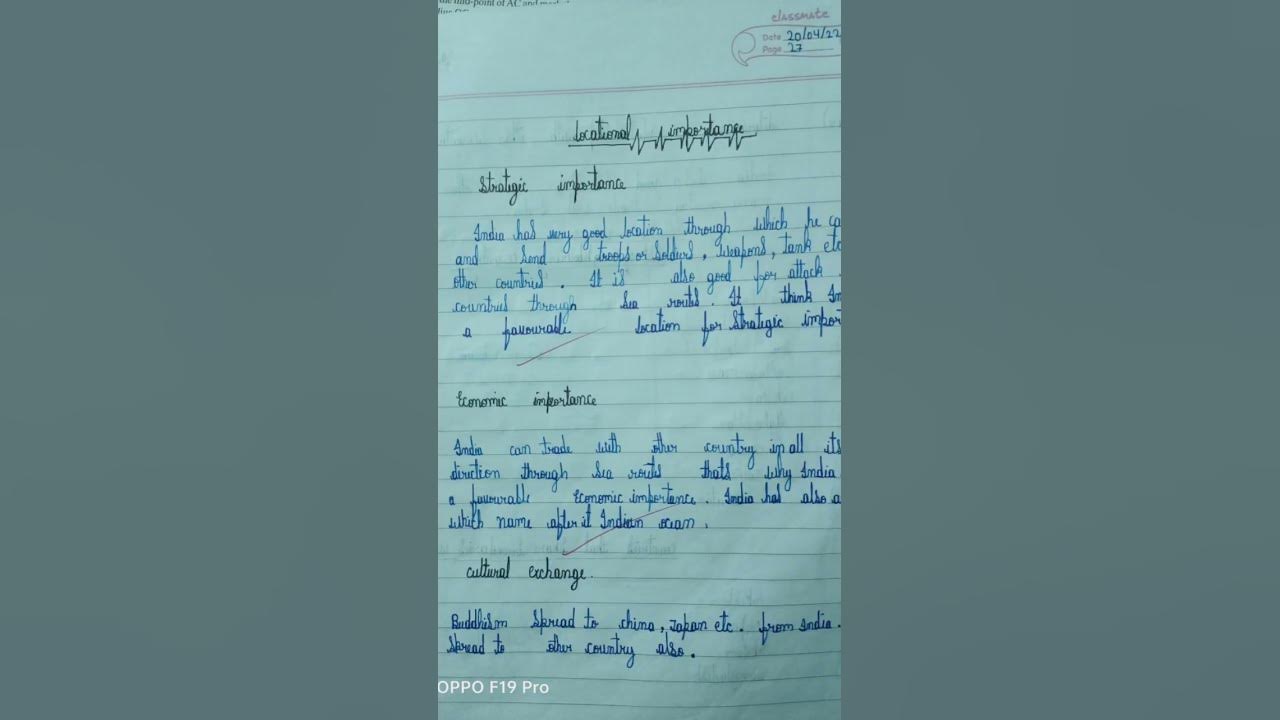 the mid-point of AC and
classmate
Date 20/04/22
Page 27
Locational importance
Strategic importance
India has very good location through which he ca
and send troops or Soldiers, weapons, tank etc
other countries. It is also good for attack
countries through Sea routes. It think In
a favourable location for Strategic impor
Economic importance
India can trade with other country in all its
direction through Sea routes thats why India
a favourable Economic importance. India has also a
which name after it Indian ocean.
Cultural Exchange.
Buddhism Spread to china, Japan etc. from India.
Spread to other country also.
OPPO F19 Pro